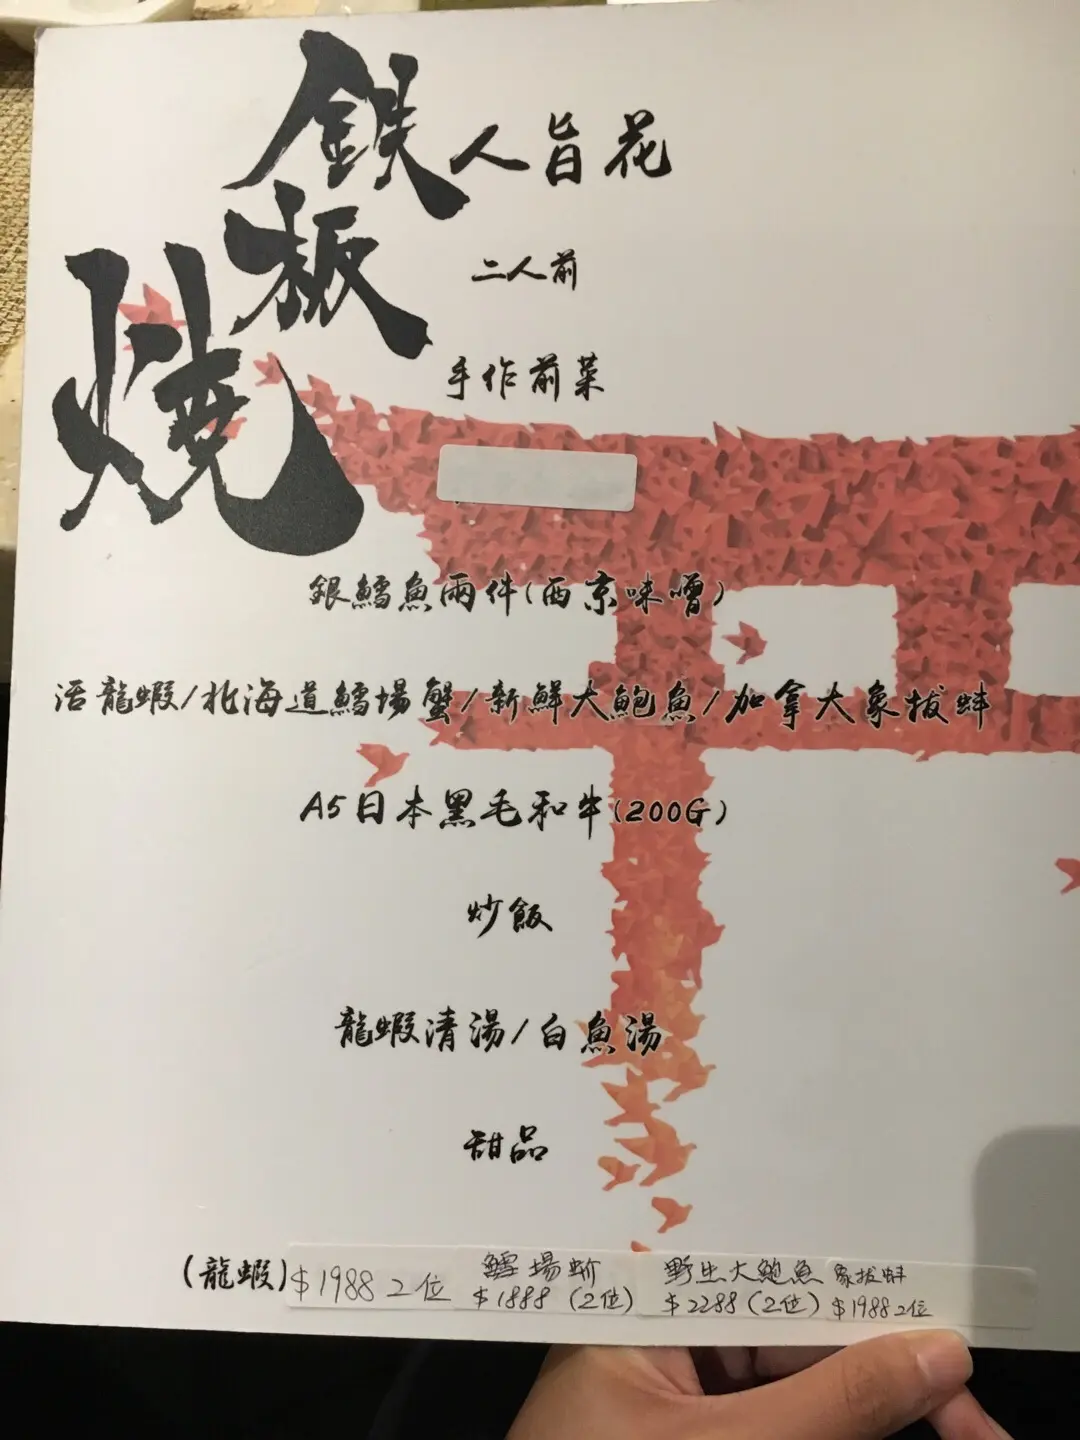 鉄板燒
人旨花
二人前
手作前菜
銀鱈魚兩件(西京味噌)
活龍蝦/北海道鱈場蟹/新鮮大鮑魚/加拿大象拔蚌
A5日本黑毛和牛(200G)
炒飯
龍蝦清湯/白魚湯
甜品
(龍蝦) $1988 2位
鱈場蚧
$1888 (2位)
野生大鮑魚
$2288 (2位)
象拔蚌
$1988 2位